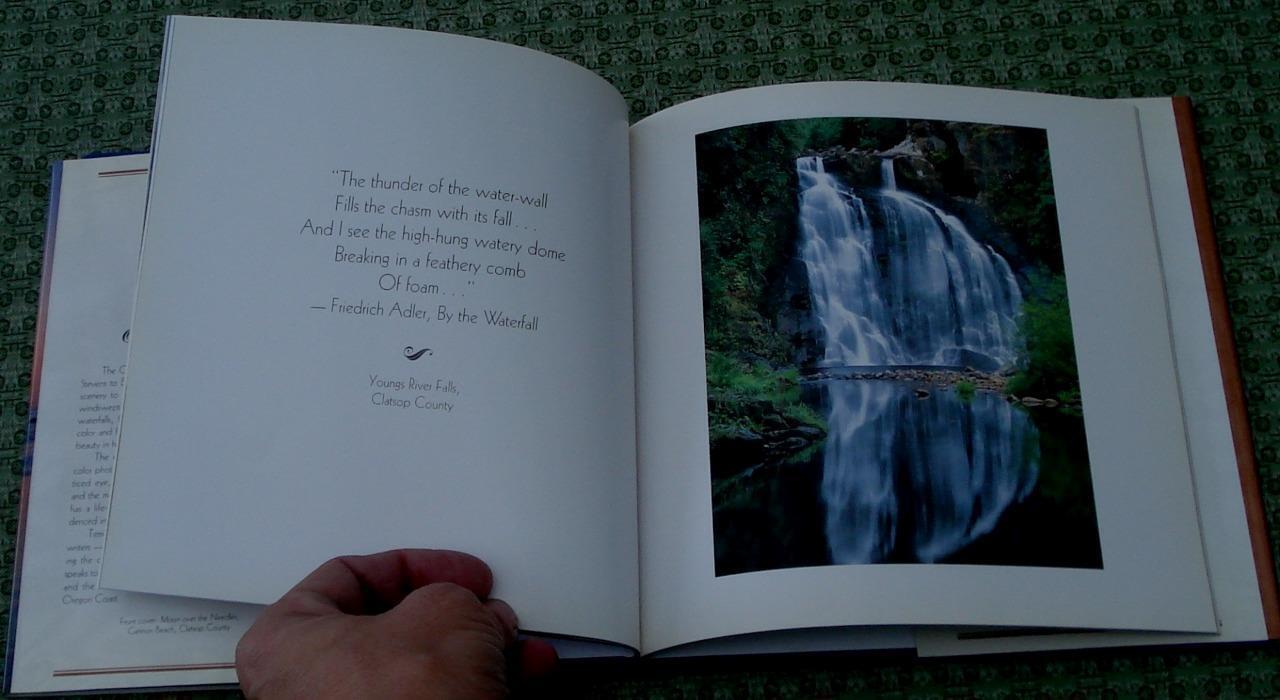 "The thunder of the water-wall
Fills the chasm with its fall . . .
And I see the high-hung watery dome
Breaking in a feathery comb
Of foam . . ."
— Friedrich Adler, By the Waterfall
Youngs River Falls,
Clatsop County
The
Stevens to
scenery to
windswept
waterfalls,
color and
beauty in
The
color
eye,
and the
has a
in
writers —
ing the
speaks to
and the
Oregon Coast.
Front cover: Moon over the Needles,
Cannon Beach, Clatsop County